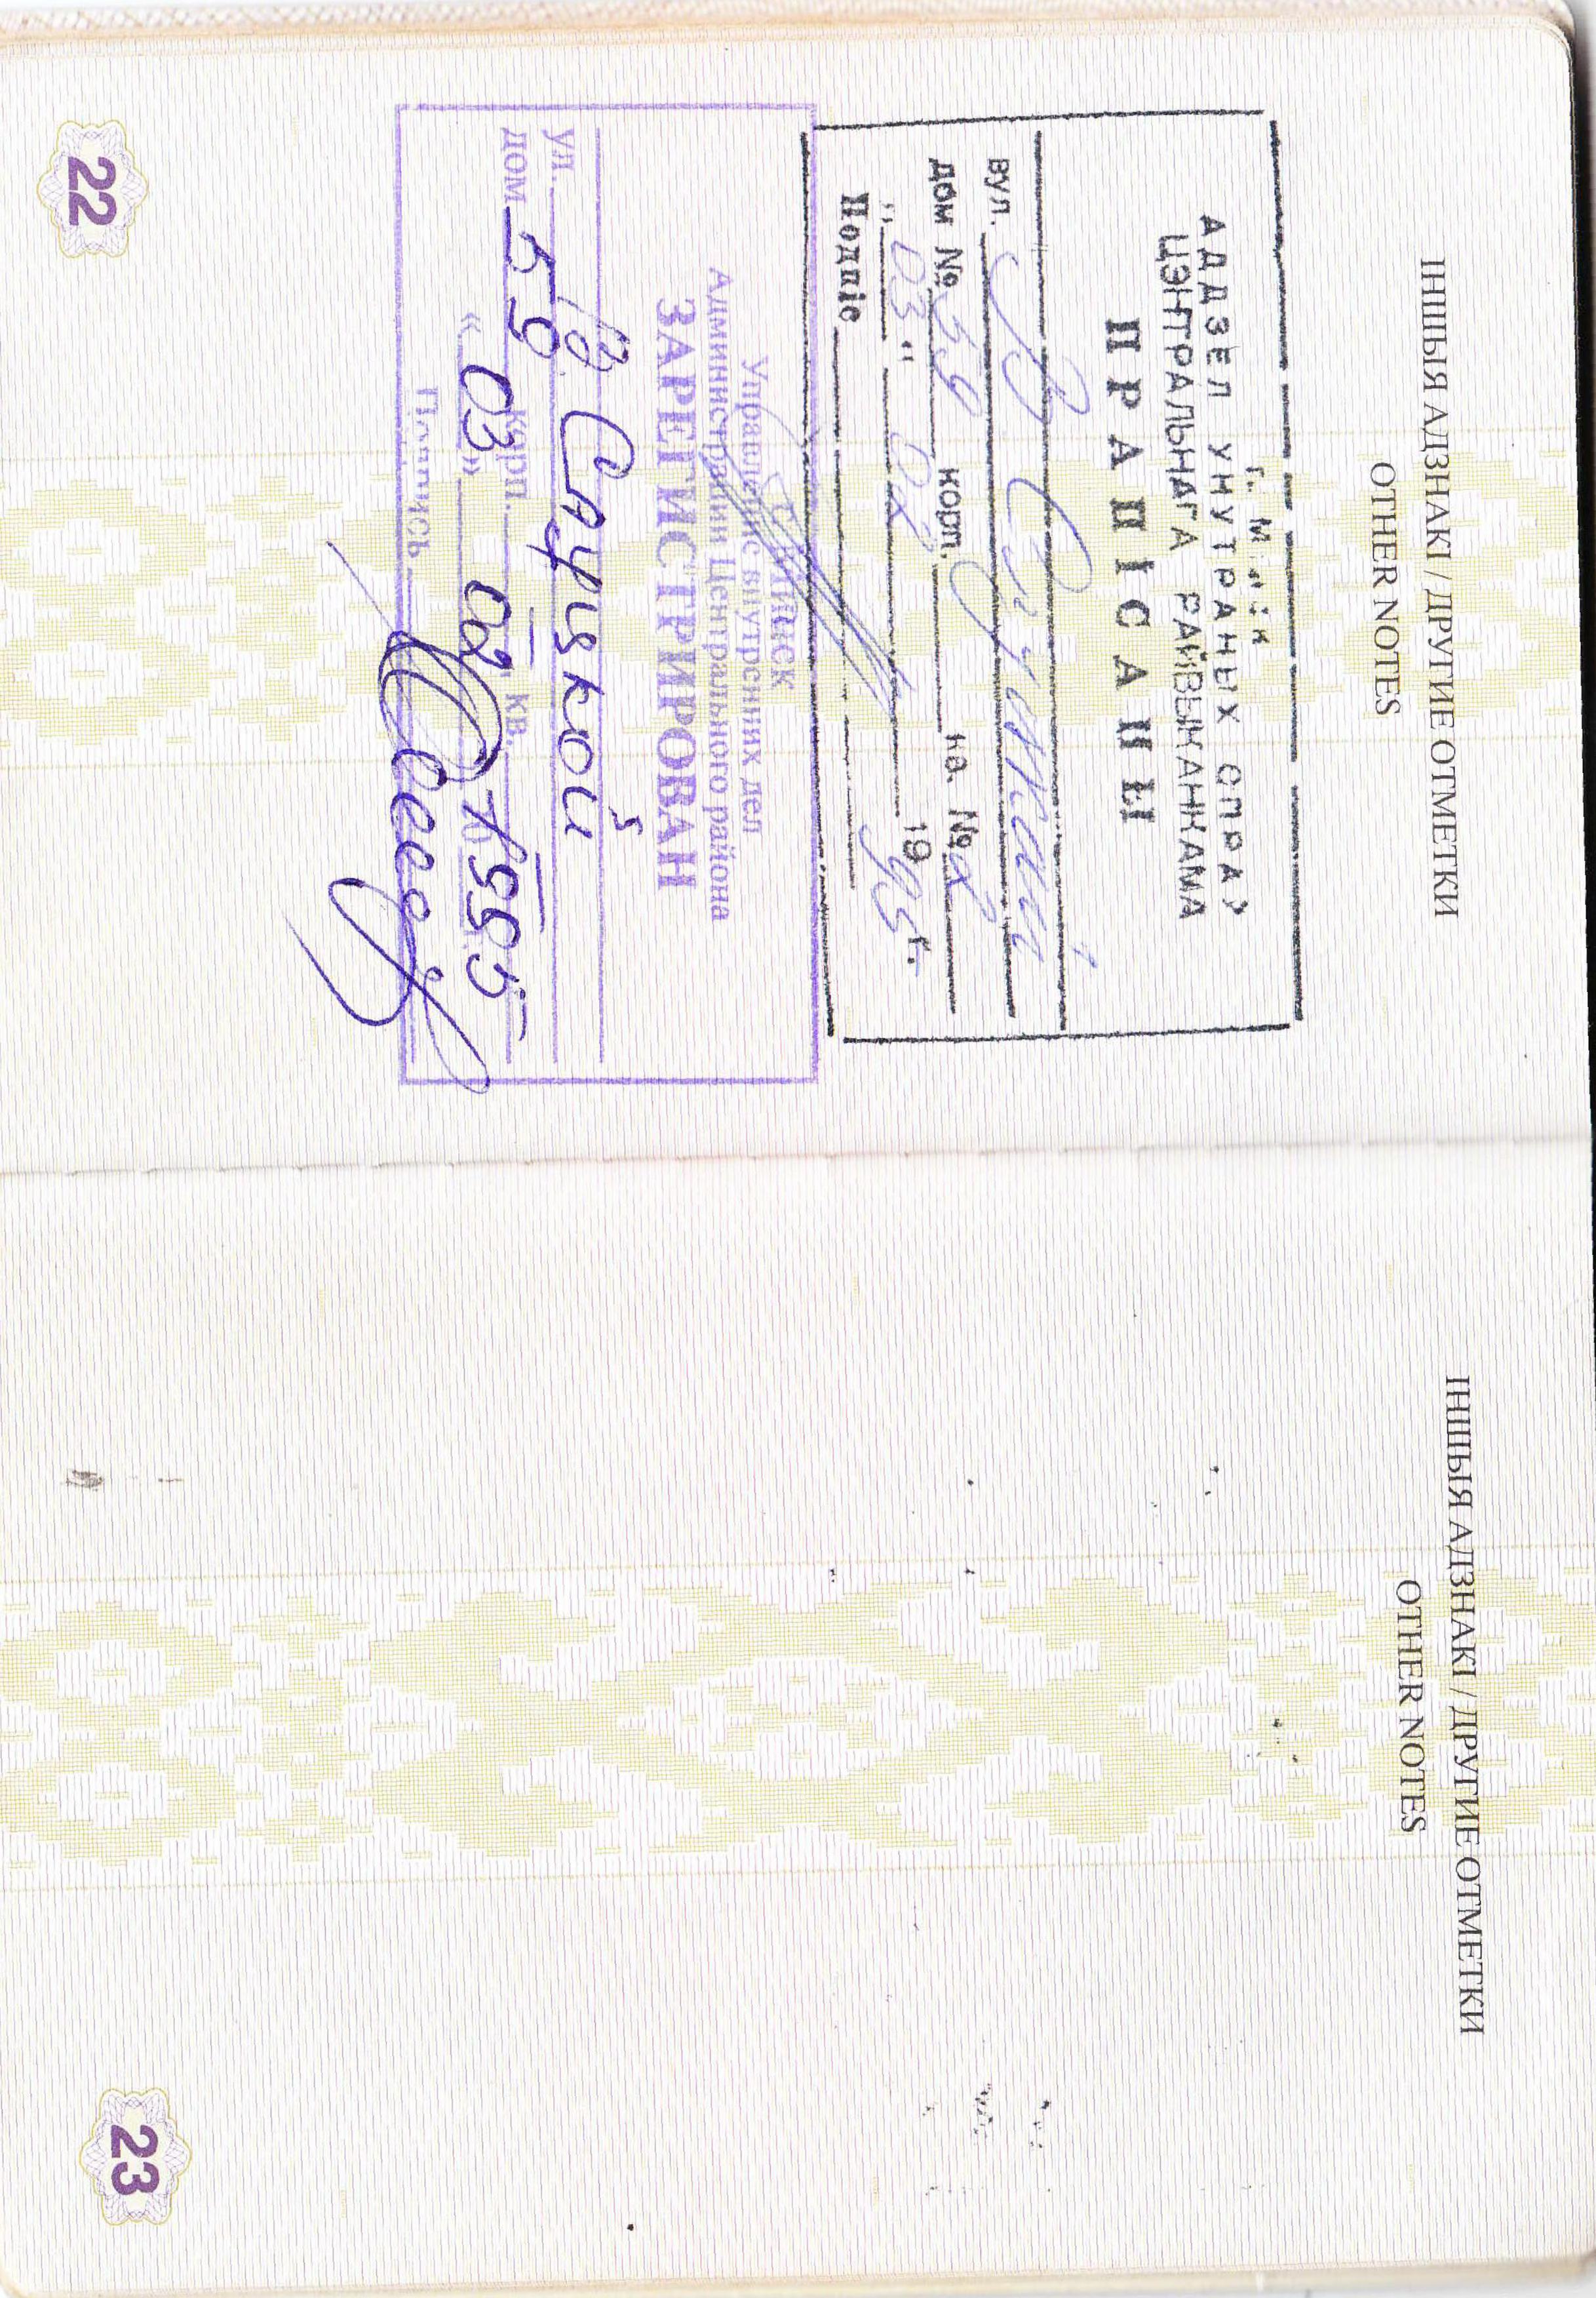 ІНШЫЯ АДЗНАКІ / ДРУГИЕ ОТМЕТКИ
OTHER NOTES
г. Мінск
АДДЗЕЛ УНУТРАНЫХ СПРАЎ
ЦЭНТРАЛЬНАГА РАЙВЫКАНКАМА
ПРАПІСАНЫ
вул. В
дом № 59 корп. кв. № 2
"03" 02 1995 г.
Подпіс
г. Минск
Управление внутренних дел
Администрации Центрального района
ЗАРЕГИСТРИРОВАН
ул. В
дом 59 корп. кв.
«03» 02 1995
Подпись
22
ІНШЫЯ АДЗНАКІ / ДРУГИЕ ОТМЕТКИ
OTHER NOTES
23